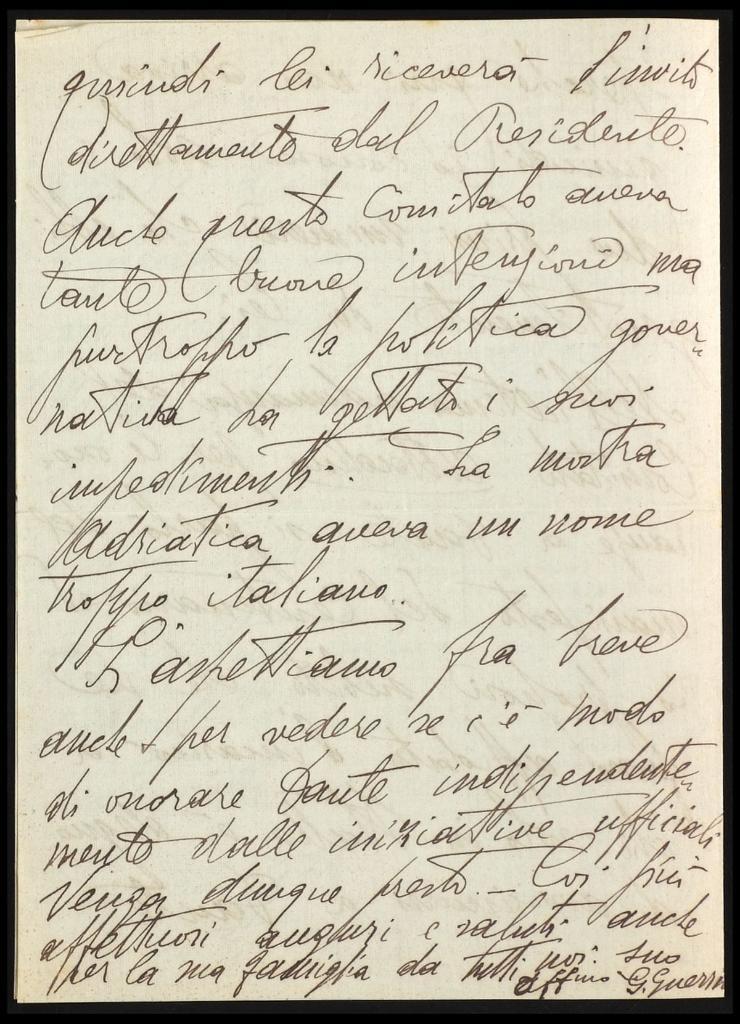 quindi lei riceverà l'invito
direttamente dal Presidente.
Anche questo Comitato aveva
tante buone intenzioni ma
purtroppo la politica gover-
nativa ha gettati i suoi
impedimenti. La mostra
Adriatica aveva un nome
troppo italiano.
L'aspettiamo fra breve
anche per vedere se c'è modo
di onorare Dante indipendente-
mente dalle iniziative ufficiali
Venga dunque presto. – Coi più
affettuosi auguri e saluti anche
per la sua famiglia da tutti noi. suo
affmo G. Guerri